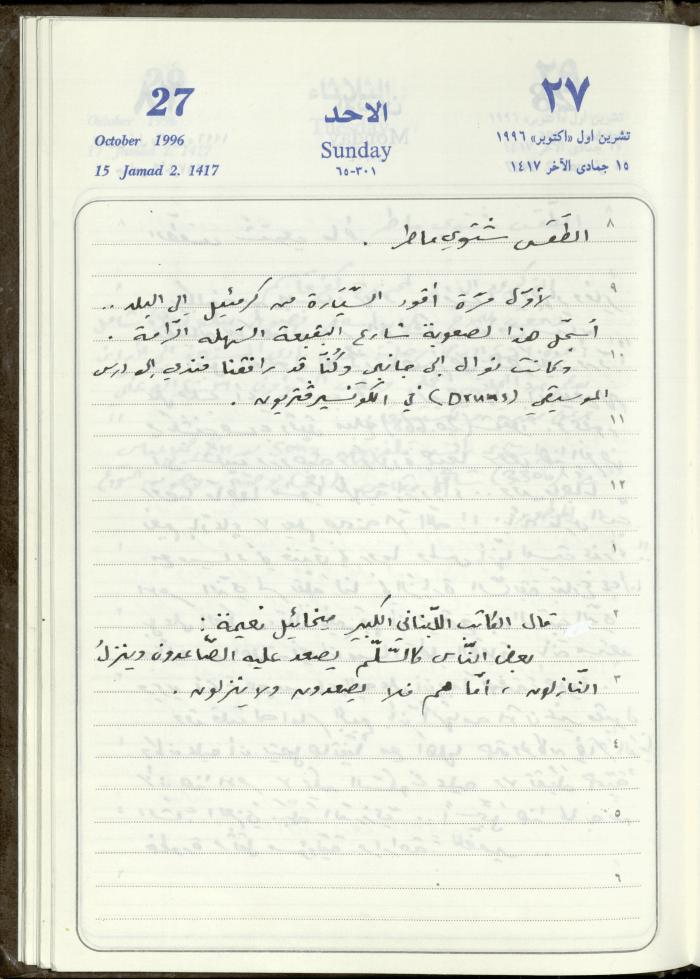 27
October 1996
15 Jamad 2. 1417
الاحد
Sunday
٣٠١-٦٥
٢٧
تشرين اول «اكتوبر» ١٩٩٦
١٥ جمادى الآخر ١٤١٧
٨
الطَقس شتوي ماطر .
٩
لأوّل مرّة أقود السّيّارة من كرمئيل إلى البلد ..
أسجّل هذا لصعوبة شارع البقيعة السّهلة الرّامة .
١٠
وكانت نوال إلى جانبي وكُنّا قد رافقنا فندي إلى درس
الموسيقى (Drums) في الكونسيرڤتريون .
١١
١٢
١
٢
قال الكاتب اللّبناني الكبير ميخائيل نعيمة :
بعض النّاس كالسّلّم يصعد عليه الصّاعدون وينزلُ
٣
النّازلون ، أمّا هم فلا يصعدون ولا ينزلون .
٤
٥
٦